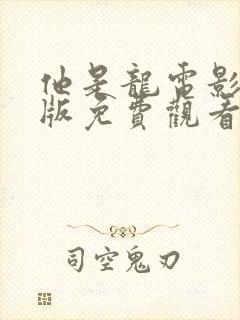 他是龍電影
版免費觀看
司空鬼刃